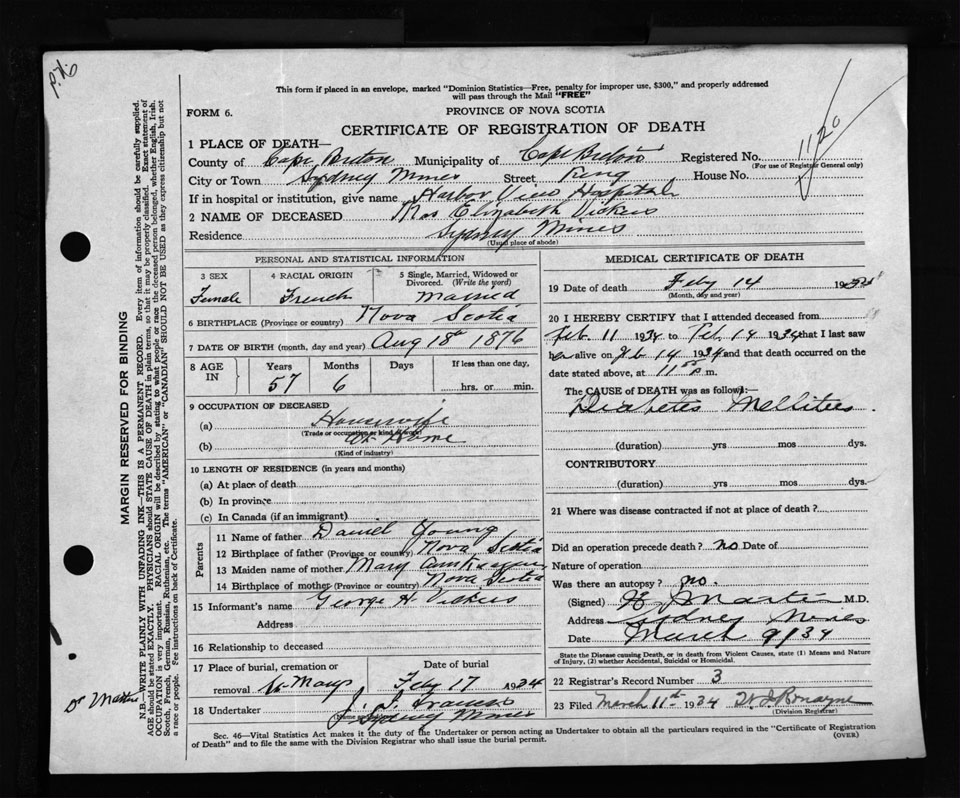 This form if placed in an envelope, marked "Dominion Statistics—Free, penalty for improper use, $300," and properly addressed
will pass through the Mail "FREE"
FORM 6.
PROVINCE OF NOVA SCOTIA
CERTIFICATE OF REGISTRATION OF DEATH
1 PLACE OF DEATH—
County of Cape Breton Municipality of Cape Breton Registered No. 1120
(For use of Registrar General only)
City or Town Sydney Mines Street King House No.
If in hospital or institution, give name Harbor View Hospital
2 NAME OF DECEASED Mrs Elizabeth Vickers
Residence Sydney Mines
(Usual place of abode)
PERSONAL AND STATISTICAL INFORMATION
3 SEX 4 RACIAL ORIGIN 5 Single, Married, Widowed or
Divorced. (Write the word)
Female French Married
6 BIRTHPLACE (Province or country) Nova Scotia
7 DATE OF BIRTH (month, day and year) Aug 18th 1876
8 AGE IN Years Months Days If less than one day,
57 6 hrs. or min.
9 OCCUPATION OF DECEASED
(a) Housewife
(Trade or occupation or kind of work)
(b) At Home
(Kind of industry)
10 LENGTH OF RESIDENCE (in years and months)
(a) At place of death
(b) In province
(c) In Canada (if an immigrant)
Parents
11 Name of father Daniel Young
12 Birthplace of father (Province or country) Nova Scotia
13 Maiden name of mother Mary Ann
14 Birthplace of mother (Province or country) Nova Scotia
15 Informant's name George H. Vickers
Address
16 Relationship to deceased
17 Place of burial, cremation or Date of burial
removal St. Marys Feby 17 1934
18 Undertaker J. J.
Sydney Mines
MEDICAL CERTIFICATE OF DEATH
19 Date of death Feby 14 1934
(Month, day and year)
20 I HEREBY CERTIFY that I attended deceased from
Feb. 11 1934 to Feb. 14 1934 that I last saw
her alive on Feb 14 1934 and that death occurred on the
date stated above, at 11 p m.
The CAUSE OF DEATH was as follows:—
Diabetes Mellitus.
(duration) yrs mos dys.
CONTRIBUTORY
(duration) yrs mos dys.
21 Where was disease contracted if not at place of death?
Did an operation precede death? no Date of
Nature of operation
Was there an autopsy? no.
(Signed) Martin M.D.
Address Sydney Mines
Date March 9/34
State the Disease causing Death, or in death from Violent Causes, state (1) Means and Nature
of Injury, (2) whether Accidental, Suicidal or Homicidal.
22 Registrar's Record Number 3
23 Filed March 11th 1934
(Division Registrar)
Sec. 46—Vital Statistics Act makes it the duty of the Undertaker or person acting as Undertaker to obtain all the particulars required in the "Certificate of Registration
of Death" and to file the same with the Division Registrar who shall issue the burial permit.
(OVER)
MARGIN RESERVED FOR BINDING
N.B.—WRITE PLAINLY WITH UNFADING INK—THIS IS A PERMANENT RECORD. Every item of information should be carefully supplied.
AGE should be stated EXACTLY. PHYSICIANS should STATE CAUSE OF DEATH in plain terms, so that it may be properly classified. Exact statement of
OCCUPATION is very important. RACIAL ORIGIN will be described by stating to what people or race the deceased person belonged, whether English, Irish,
Scotch, French, German, Russian, Ruthenian, etc. The terms "AMERICAN" or "CANADIAN" SHOULD NOT BE USED as they express citizenship but not
a race or people. See instructions on back of Certificate.
Dr Martin